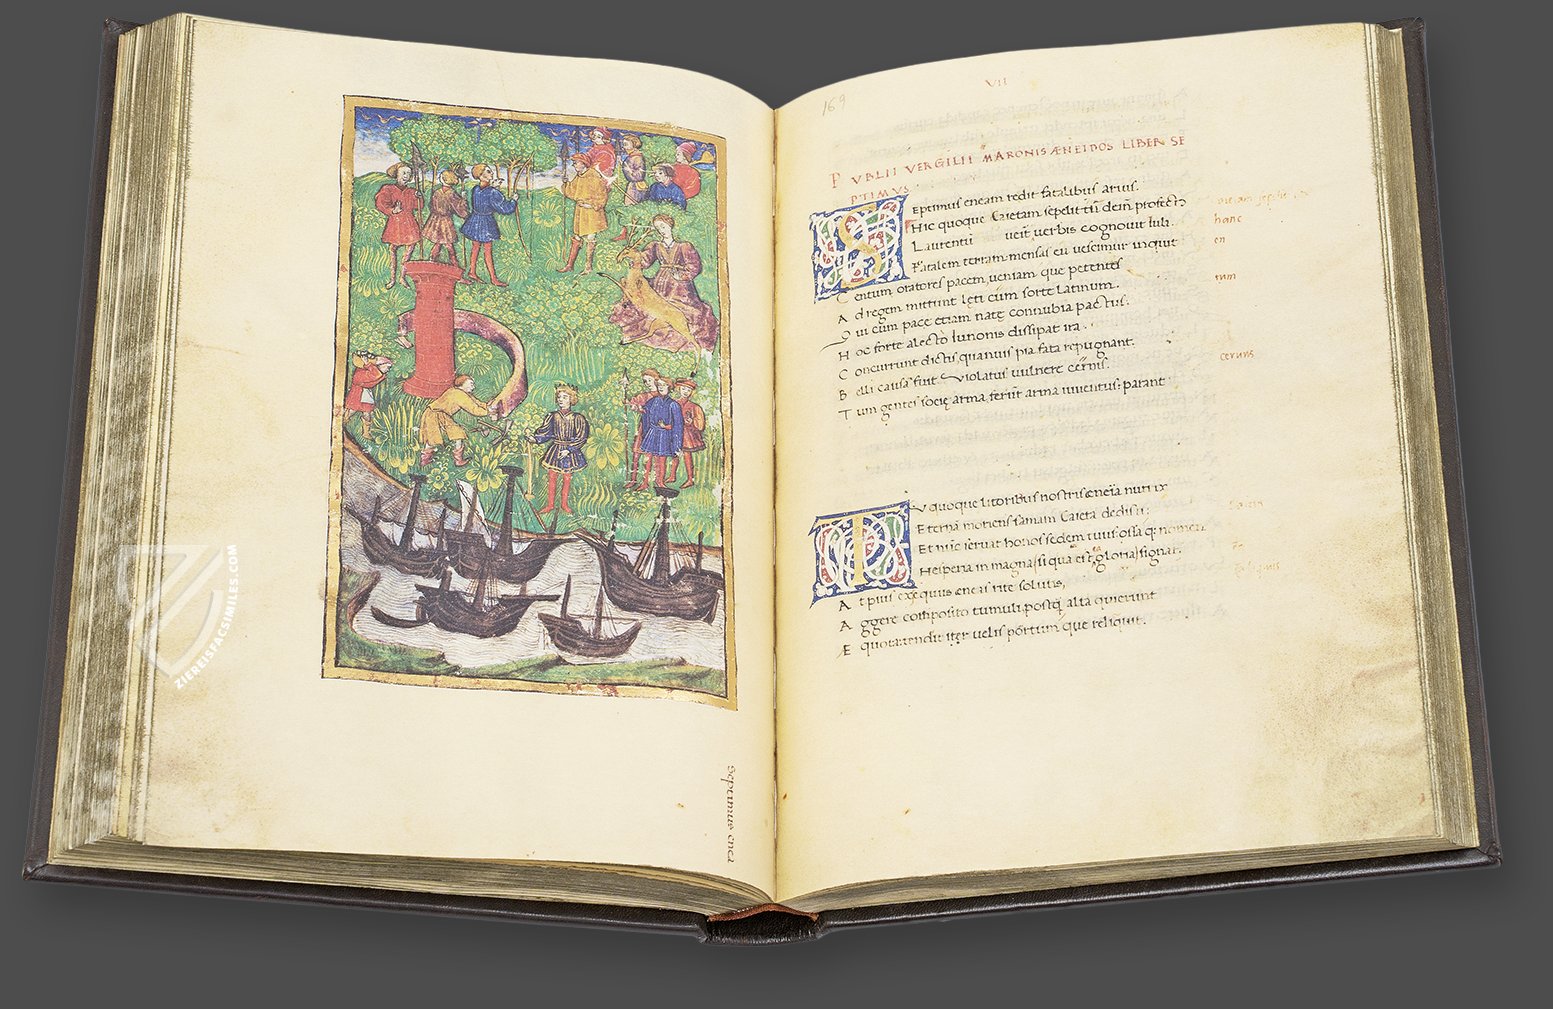 ZIEREISFACSIMILES.COM
Septimus enei
VII
169
PVBLII VERGILII MARONIS ÆNEIDOS LIBER SE
PTIMVS
SEptimus eneam redit fatalibus aruis.
Hic quoque Caietam sepelit tū dein profect9
Laurentū venit verbis cognovit Iuli.
Fatalem terram mensas eu vescimur inquit
Centum oratores pacem veniam que petentes
Ad regem mittunt leti cum sorte latinum.
Qui cum pace etiam natę connubia pactus.
Hoc forte alecto Iunonis dissipat ira.
Concurrunt dictis quamuis pia fata repugnant.
Belli causa fuit violatus vulnere cervus.
Tum gentes socię arma ferūt arma iuventus parant
hanc
en
tum
cervus
TV quoque litoribus nostris eneia nutrix
Eternā moriens famam Caieta dedisti:
Et nūc servat honos sedem tuus: ossa q: nomen
Hesperia in magna si qua est gloria signat.
At pius exequiis eneas rite solutis,
Aggere composito tumuli postq alta quierunt
Æquora: tendit iter velis portum que reliquit.